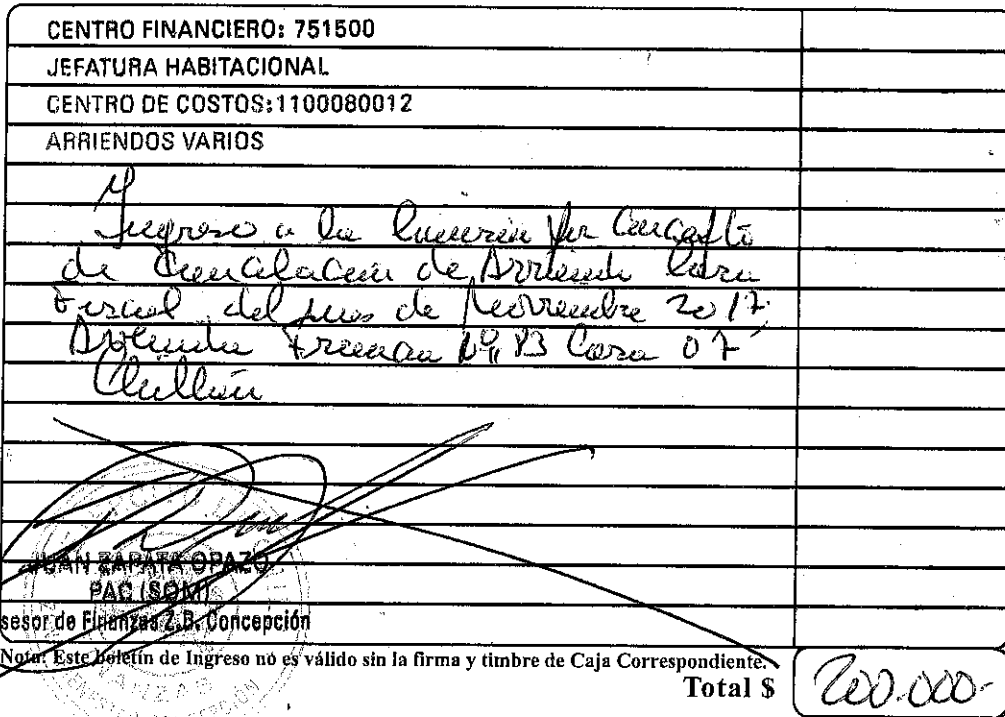 CENTRO FINANCIERO: 751500
JEFATURA HABITACIONAL
CENTRO DE COSTOS:1100080012
ARRIENDOS VARIOS
Ingreso a la por Concepto
de Cancelación de Arriendo Casa
Fiscal del mes de Noviembre 2017
Avenida Nº 83 Casa 07
Chillán
JUAN ZAPATA OPAZO
PAC (SOM)
sesor de Finanzas Z.B. Concepción
Nota: Este boletín de Ingreso no es válido sin la firma y timbre de Caja Correspondiente.
Total $ 200.000-